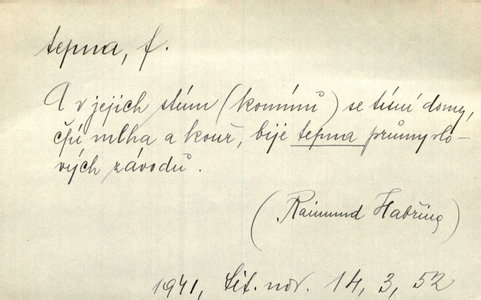 tepna, f.
A v jejich stínu (komínů) se tísní domy,
čpí mlha a kouř, bije tepna průmyslo-
vých závodů.
(Raimund Habřina)
1941, Lit. nov. 14, 3, 52